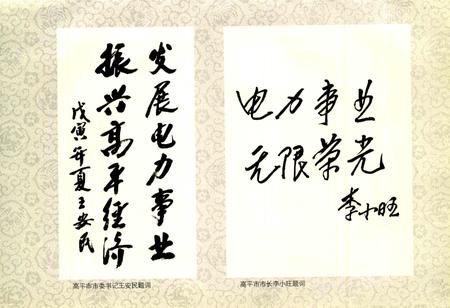 发展电力事业
振兴高平经济
戊寅年夏王安民
高平市市委书记王安民题词
电力事业
无限荣光
李小旺
高平市市长李小旺题词